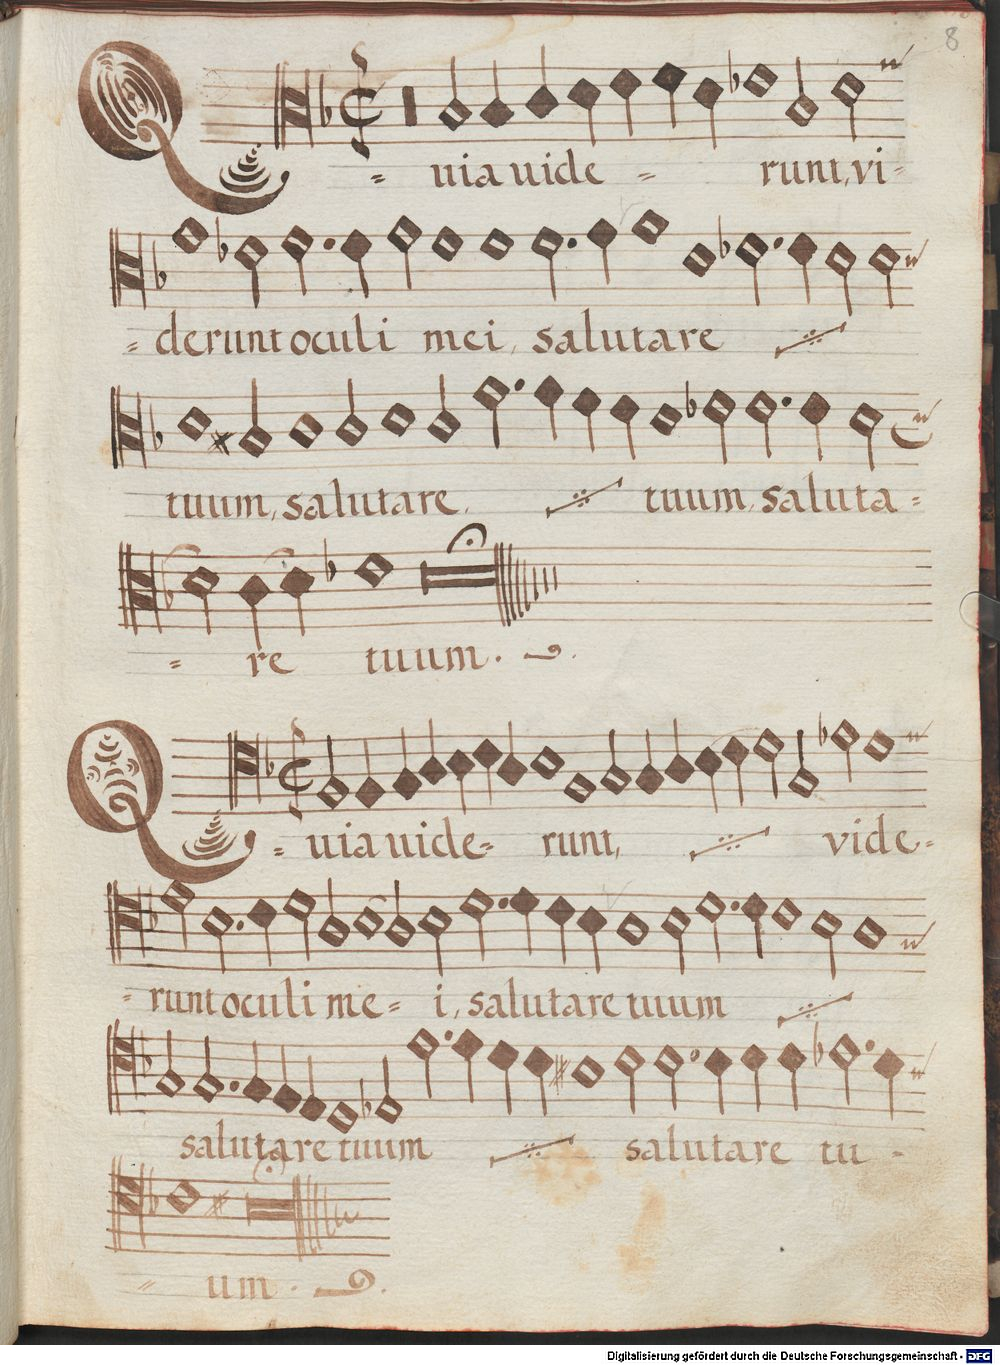 8
Quia uide = runt, vi=
= derunt oculi mei, salutare
tuum, salutare, tuum, saluta=
= re tuum.
Quia uide= runt, vide=
= runt oculi me= i, salutare tuum
salutare tuum salutare tu=
= um.
Digitalisierung gefördert durch die Deutsche Forschungsgemeinschaft - DFG